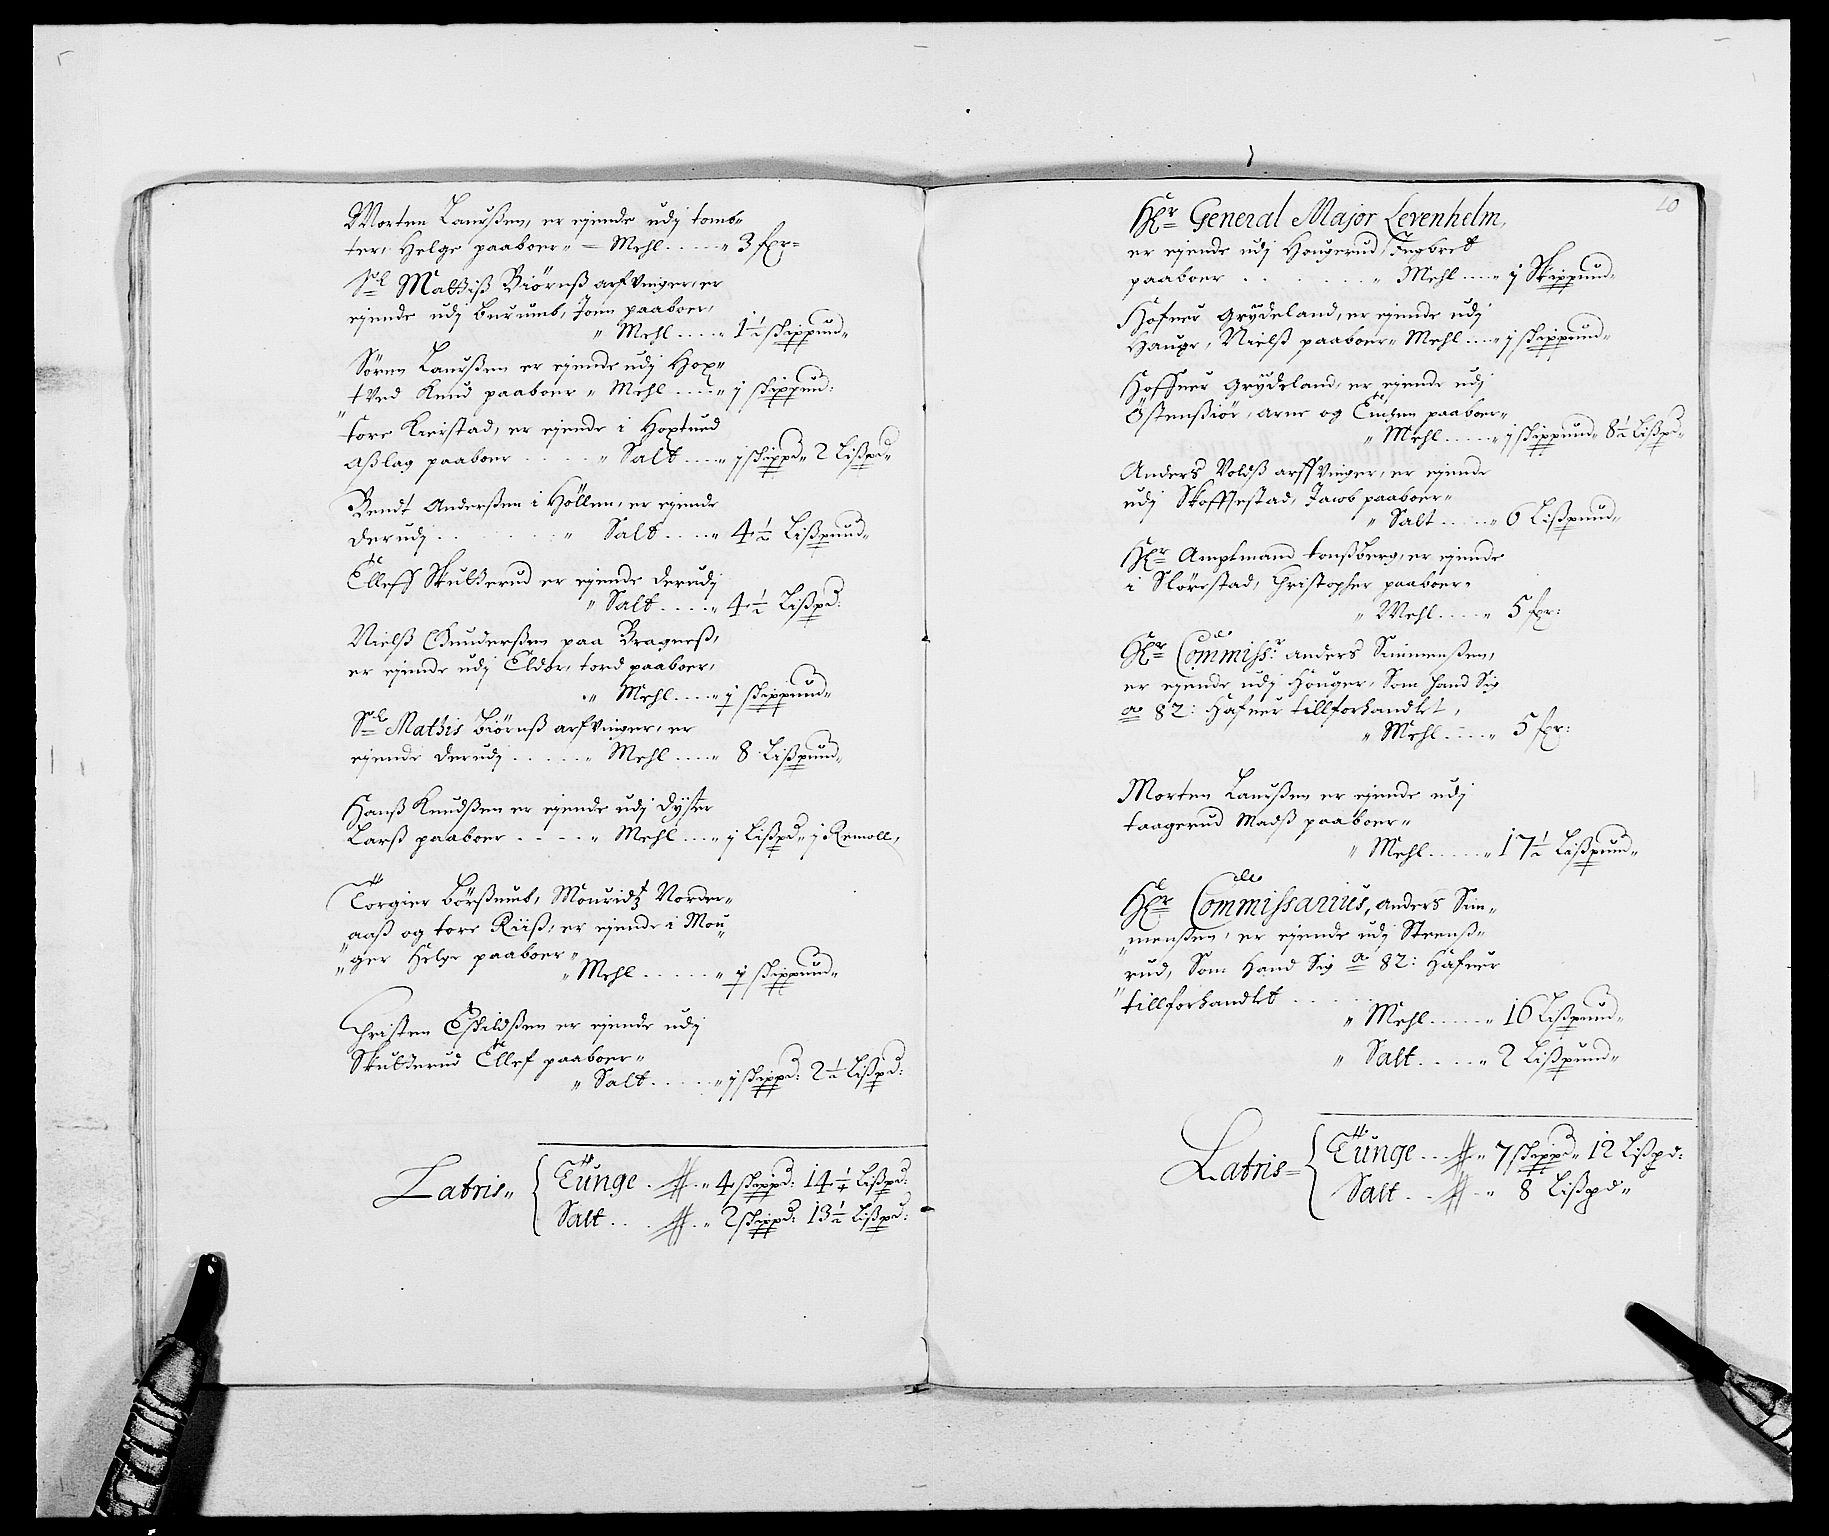 Morten Laurßen, er ejende udj tomb„
ter, Helge paaboer„ = Mehl ..... „ 3 fr=
Sl Mathiß Biörnß arfvinger, er
ejende udj Burumb, Joen paaboer,
„ Mehl ..... „ 1½ skippund„
Sören Laurßen er ejende udj Hop„
„tved Knud paaboer „ Mehl .... „ j skippund:
tore Kierstad, er ejende i Hoptued
Aßlag paaboer ..... „ Salt .... „ j skippd„ 2 Lißpd„
Bendt Anderßen i Höllen, er ejende
derudj ....... „ Salt .... „ 4½ Lißpund„
Elleff Skulderud er ejende derudj
„ Salt .... „ 4½ Lißpd:
Nielß Gunderßen paa Bragneß,
er ejende udj Eldor, tord paaboer,
„ Mehl .... „ j skippund„
Sl Mathis Biörnß arfvinger, er
ejende derudj ..... „ Mehl .... „ 8 Lißpund„
Hanß Knudßen er ejende udj Dyster
Larß paaboer ..... „ Mehl .... „ j Lißpd„ j Remoll,
Torgier Börßumb, Mouridtz Norder„
„aaß og tore Riiß, er ejende i Mou„
„ger Helge paaboer„
„ Mehl ..... „ j skippund„
Christen Eskildßen er ejende udj
Skulderud Ellef paaboer„
„ Salt ..... „ j skippd: 2½ Lißpd:
Latris„ Tünge . „ 4 skippd: 14¼ Lißpd:
Salt .... „ 2 skippd: 13½ Lißpd:
10
Hr General Major Levenhelm,
er ejende udj Hougerud, Ingbret
paaboer ....... „ Mehl .... „ j Skippund„
Hofner Grydeland, er ejende udj
Hauge, Nielß paaboer„ Mehl .... „ j skippund„
Hoffner Grydeland, er ejende udj
Östenßiör, Arne og paaboer„
„ Mehl ..... „ j skippund„ 8½ Lißpd„
Anders Voldß arffvinger, er ejende
udj Skofftestad, Jacob paaboer„
„ Salt ..... „ 6 Lißpund„
Hr Amptmand tonßberg, er ejende
i Slörstad, Christopher paaboer„
„ Mehl .... „ 5 fr:
Hr Commissr: Anders Simmenßen,
er ejende udj Houger, Som hand Sig
ao 82: Hafuer tillforhandlet,
„ Mehl .... „ 5 fr:
Morten Laurßen er ejende udj
taagerud Madß paaboer„
„ Mehl ..... „ 17½ Lißpund„
Hr Commissarius, Anders Sim„
„menßen, er ejende udj Steenß„
„rud, Som Hand Sig ao 82: Hafuer
„tillforhandlet .....
„ Mehl ..... „ 16 Lißpund„
„ Salt ..... „ 2 Lißpund„
Latris= Tünge ... „ 7 skippd„ 12 Lißpd:
Salt ... „ 8 Lißpd„